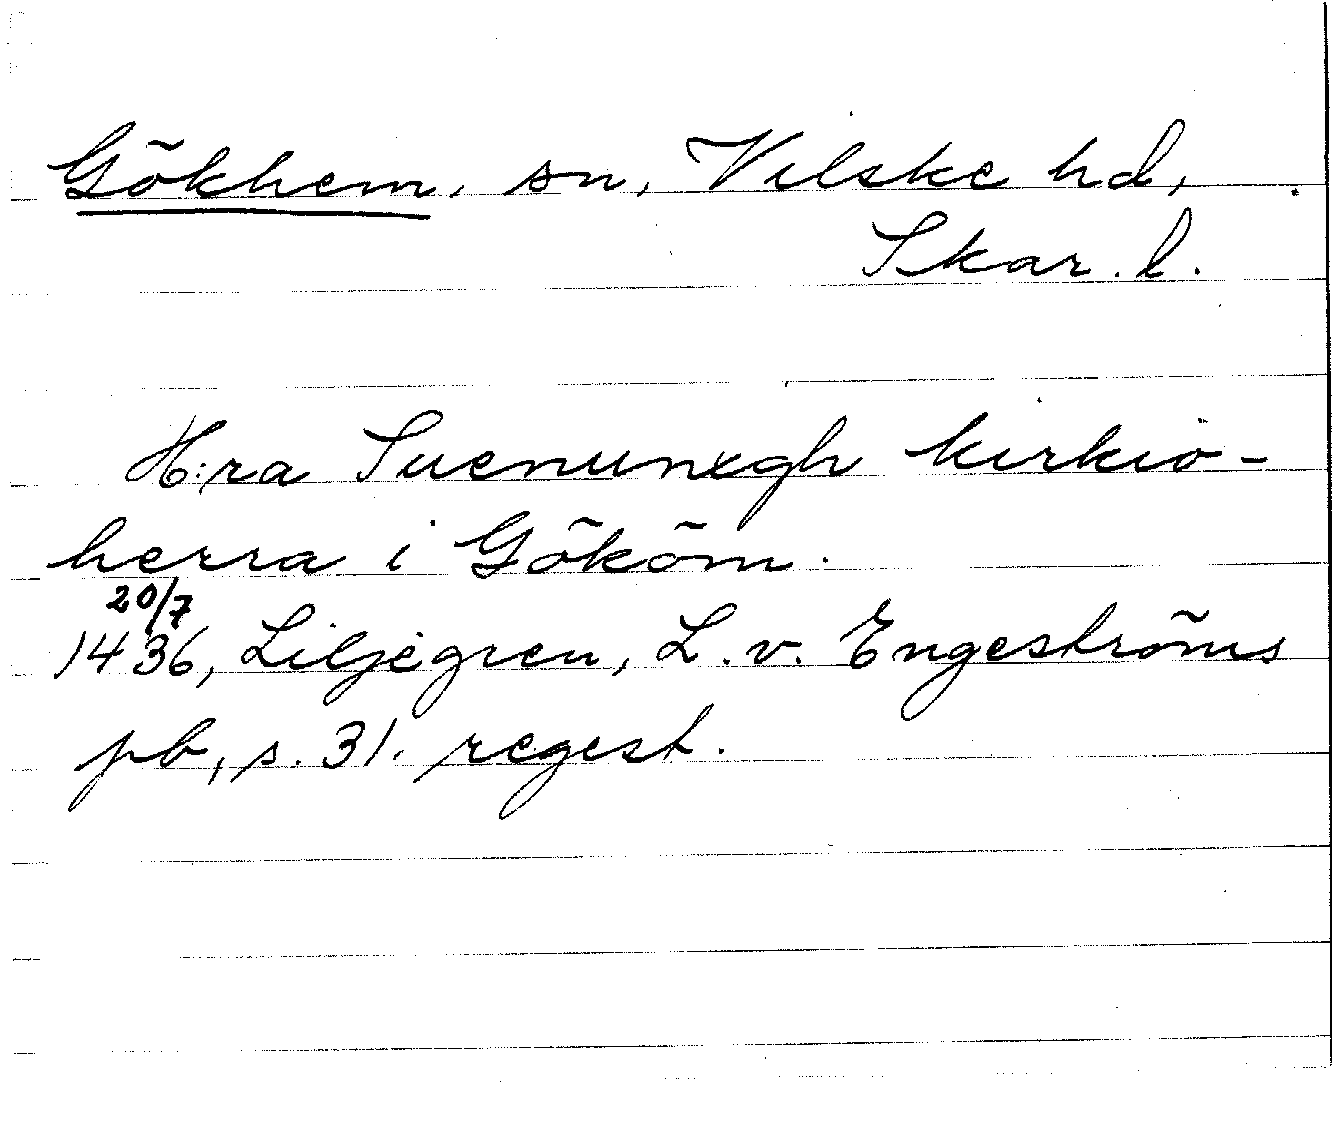 Gökhem, sn, Vilske hd,
Skar. l.
H:ra Suenunxgh kirkio-
herra i Gököm.
20/7
1436, Liljegren, L. v. Engeströms
pb, s. 31. regest.